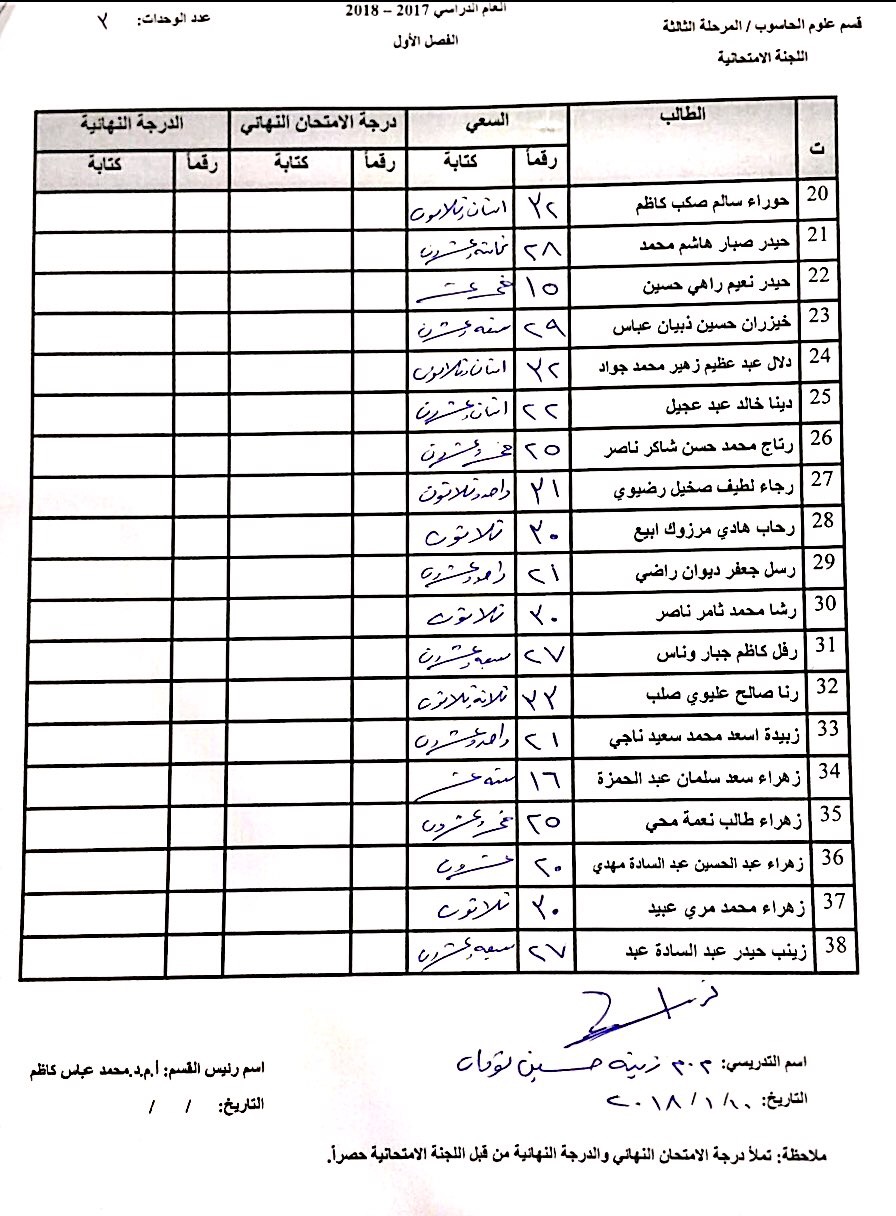 قسم علوم الحاسوب / المرحلة الثالثة العام الدراسي 2017 – 2018 عدد الوحدات: ٣
اللجنة الامتحانية الفصل الأول
ت الطالب السعي درجة الامتحان النهائي الدرجة النهائية
رقماً كتابة رقماً كتابة رقماً كتابة
20 حوراء سالم صكب كاظم ٣٢ اثنان وثلاثون
21 حيدر صبار هاشم محمد ٢٨ ثمانية وعشرون
22 حيدر نعيم راهي حسين ١٥ خمس عشر
23 خيزران حسين ذبيان عباس ٢٩ تسعه وعشرون
24 دلال عبد عظيم زهير محمد جواد ٣٢ اثنان وثلاثون
25 دينا خالد عبد عجيل ٢٢ اثنان وعشرون
26 رتاج محمد حسن شاكر ناصر ٢٥ خمس وعشرون
27 رجاء لطيف صخيل رضيوي ٣١ واحد وثلاثون
28 رحاب هادي مرزوك ابيع ٣٠ ثلاثون
29 رسل جعفر ديوان راضي ٢١ واحد وعشرون
30 رشا محمد ثامر ناصر ٣٠ ثلاثون
31 رفل كاظم جبار وناس ٢٧ سبعه وعشرون
32 رنا صالح عليوي صلب ٣٣ ثلاثة وثلاثون
33 زبيدة اسعد محمد سعيد ناجي ٢١ واحد وعشرون
34 زهراء سعد سلمان عبد الحمزة ١٦ سته عشر
35 زهراء طالب نعمة محي ٢٥ خمس وعشرون
36 زهراء عبد الحسين عبد السادة مهدي ٢٠ عشرون
37 زهراء محمد مري عبيد ٣٠ ثلاثون
38 زينب حيدر عبد السادة عبد ٢٧ سبعه وعشرون
اسم التدريسي: م.م زينه حسين اسم رئيس القسم: أ.م.د.محمد عباس كاظم
التاريخ: ١٠/ ١ / ٢٠١٨ التاريخ: / /
ملاحظة: تملأ درجة الامتحان النهائي والدرجة النهائية من قبل اللجنة الامتحانية حصراً.